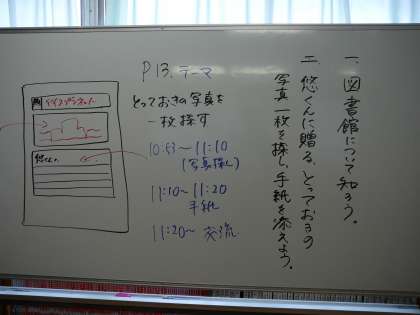 一、図書館について知ろう。
二、悠くんに贈る、とっておきの
写真一枚を探し、手紙を添えよう。
P13. テーマ
とっておきの写真を
一枚探す
10:53〜11:10
(写真探し)
11:10〜11:20
手紙
11:20〜 交流
悠くんへ